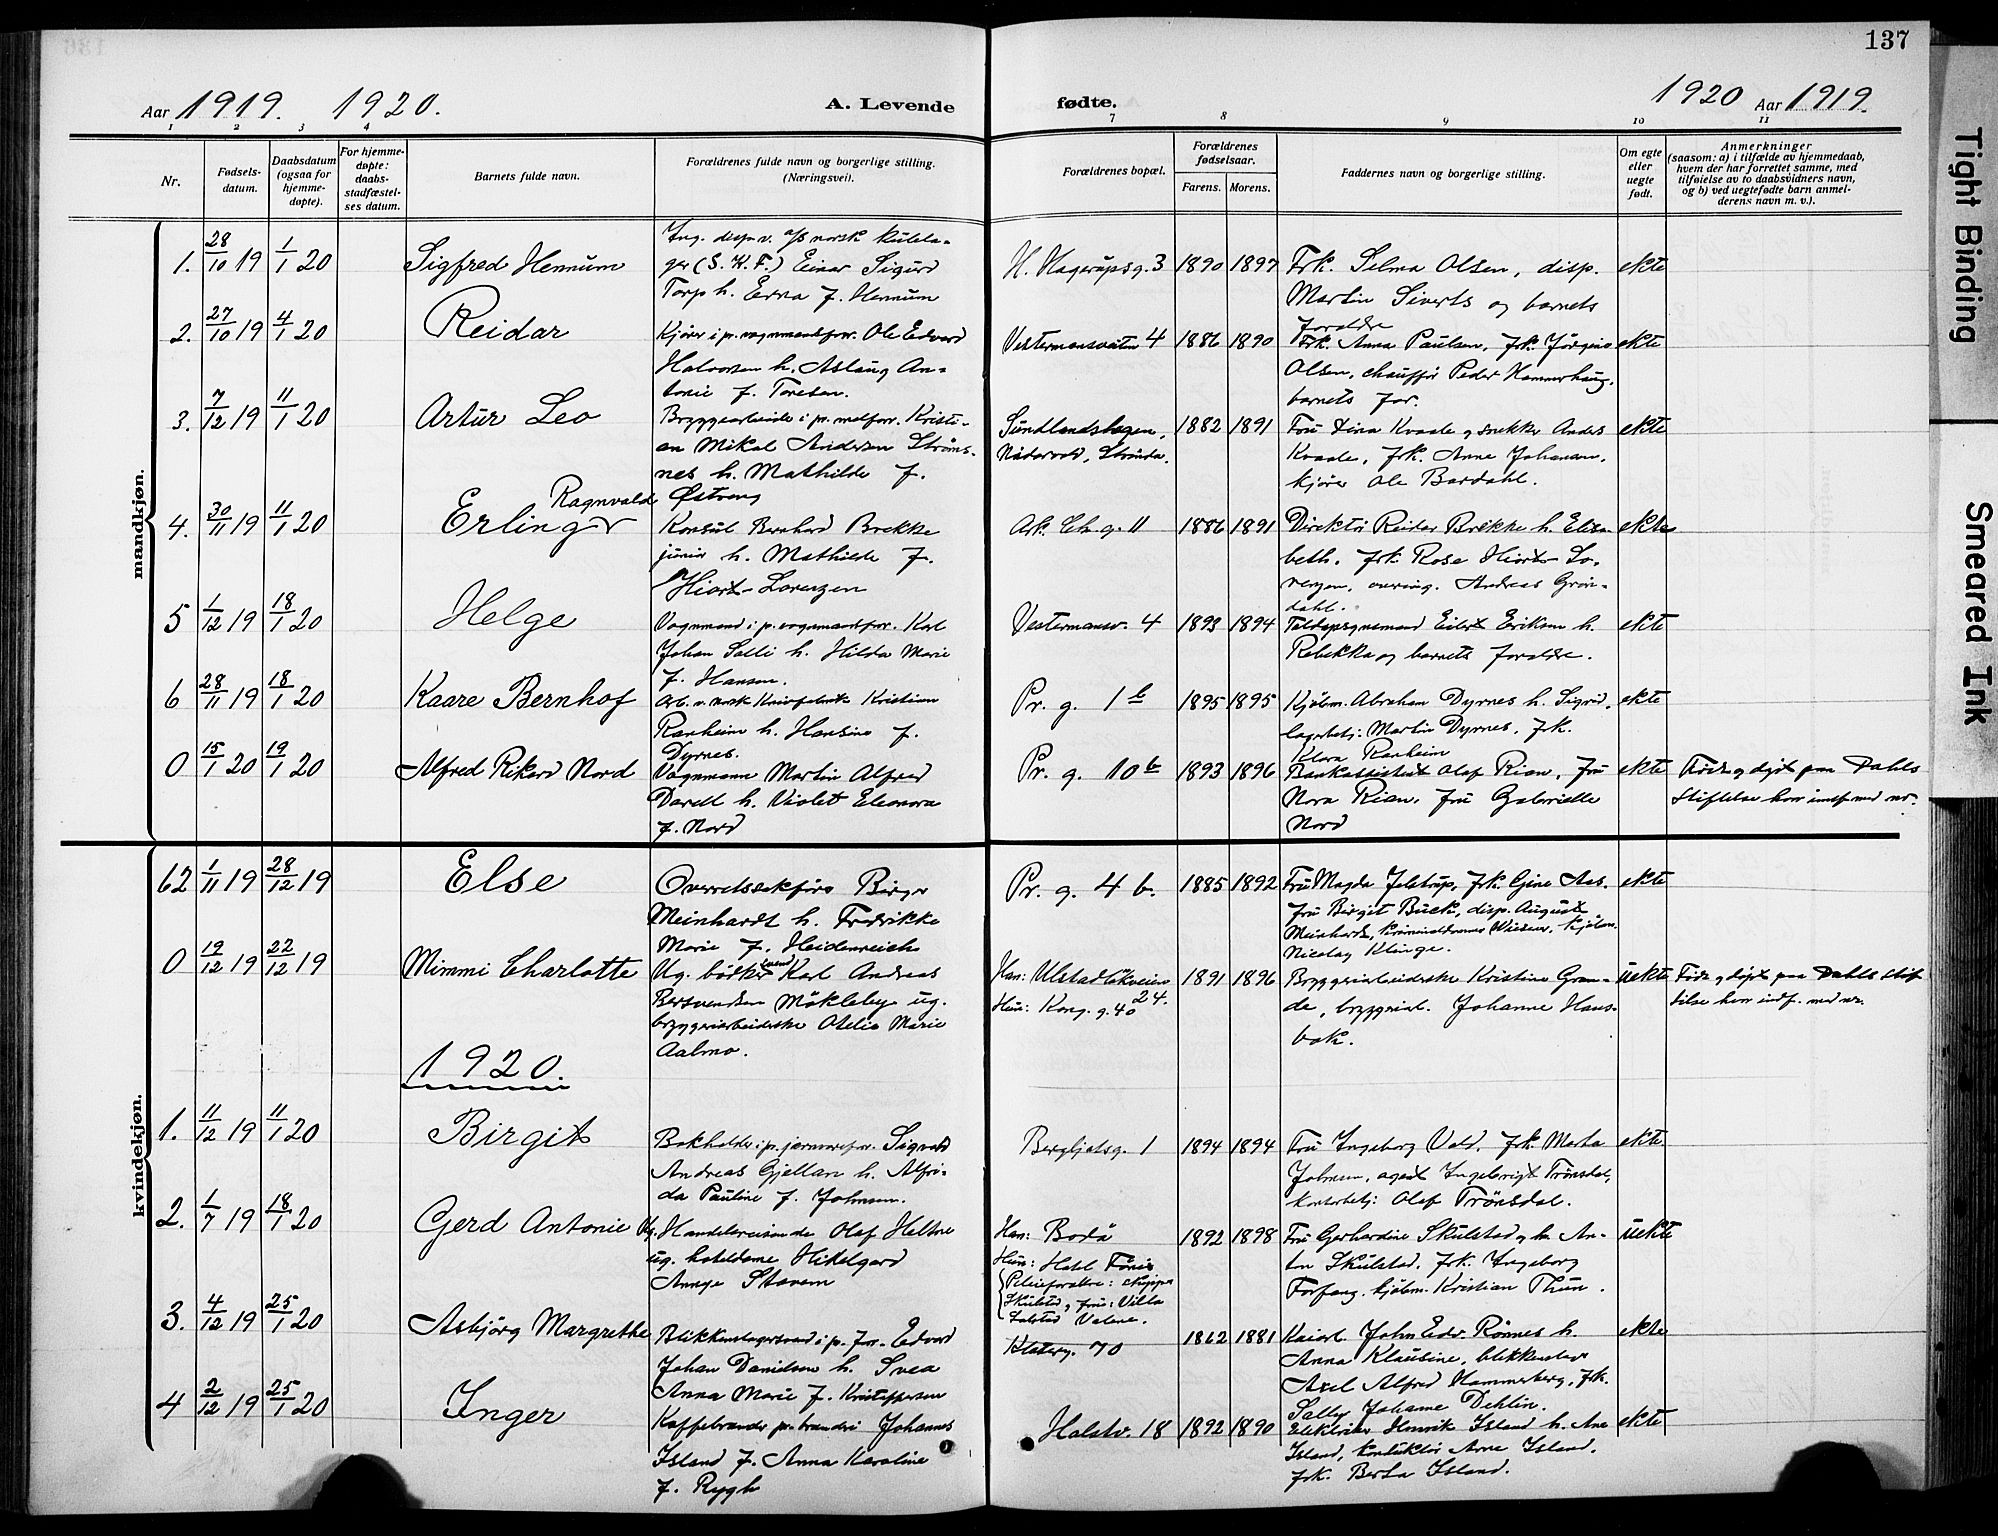 137
Aar 1919. 1920.
A. Levende
fødte.
1920 Aar 1919.
1 2 3 4 7 8 9 10 11
Nr.
Fødsels-
datum.
Daabsdatum
(ogsaa for
hjemme-
døpte).
For hjemme-
døpte:
daabs-
stadfæstel-
ses datum.
Barnets fulde navn.
Forældrenes fulde navn og borgerlige stilling.
(Næringsvei).
Forældrenes bopæl.
Forældrenes
fødselsaar.
Farens. Morens.
Faddernes navn og borgerlige stilling.
Om egte
eller
uegte
født.
Anmerkninger
(saasom: a) i tilfælde av hjemmedaab,
hvem der har forrettet samme, med
tilføielse av to daabsvidners navn,
og b) ved uegtefødte barn anmel-
derens navn m. v.).
mandkjøn.
1. 28/10 19 1/1 20 Sigfred Hennum
Ing. disp. v. a/s norsk kulela-
ger (S. K. F.) Einar Sigurd
Torp h. Erna f. Hennum
H. Hagerupsg. 3 1890 1897
Frk. Selma Olsen, disp.
Martin Siverts og barnets
foraldre
ekte
2. 27/10 19 4/1 20 Reidar
Kjører i p. vognmandsforr. Ole Edvard
Halvorsen h. Aslaug An-
tonie f. Toresen.
Vestermansveiten 4 1886 1890
Frk. Anna Paulsen, frk. Jørgine
Olsen, chauffør Peder Hammerhaug,
barnets far.
ekte
3. 7/12 19 11/1 20 Artur Leo
Bryggearbeider i p. melforr. Kristi-
an Mikal Andersen Strøms-
nes h. Mathilde f.
Østvang
Sundlandshagen, 1882 1891
Strinda.
Fru Dina Kvaale og snekker Anders
Kvaale, frk. Anne Johansen,
kjører Ole Bardahl.
ekte
4. 30/11 19 11/1 20 Erling Ragnvald
Konsul Bernhard Brekke
junior h. Mathilde f.
Hiort-Lorenzen
Ark. Ch. g. 11 1886 1891
Direktør Reidar Brekke h. Elisa-
beth. frk. Rose Hiort-Lo-
renzen, Andreas Grøn-
dahl.
ekte
5 1/12 19 18/1 20 Helge
Vognmand i p. vognmandsforr. Karl
Johan Salli h. Hilda Marie
f. Hansen.
Vestermansv. 4 1893 1894
Eilert Eriksen h.
Rebekka og barnets foraldre.
ekte
6 28/11 19 18/1 20 Kaare Bernhof
Arb. v. norsk Knivfabrik Kristian
Ranheim h. Hansine f.
Dyrnes.
Pr. g. 1 b 1895 1895
Kjøbm. Abraham Dyrnes h. Sigrid,
lagerbetj: Martin Dyrnes, frk.
Klara Ranheim
ekte
0 15/1 20 19/1 20 Alfred Rikard Nord
Vognmann Martin Alfred
Darell h. Violet Eleonora
f. Nord
Pr. g. 10 b 1893 1896
Bankassistent Olaf Rian, Fru
Nora Rian, fru Gabrielle
Nord
ekte
Født og døpt paa Dahls
Stiftelse hvor indf. med nr.
kvindekjøn.
62 1/11 19 28/12 19 Else
Overretssakfører Birger
Meinhardt h. Fredrikke
Marie f. Heidenreich
Pr. g. 4 b. 1885 1892
Fru Magda Jelstrup, frk. Gine Aas.
fru Birgit Buck, disp. August
Meinhardt, kjøbm.
Nicolay Klinge.
ekte
0 19/12 19 22/12 19 Mimmi Charlotte
Ug. bødkersvend Karl Andreas
Bersvendsen Møkleby ug.
bryggeriarbeiderske Otelie Marie
Aalmo.
Han: Ulstadløkveien 24. 1891 1896
Hun: Kong. g. 40
Bryggeriarbeiderske Kristine Gran-
de, bryggeriarb. Johanne Hans-
bak.
uekte
Født og døpt paa Dahls Stif
telse hvor indf. med nr.
1920.
1. 11/12 19 11/1 20 Birgit
Bokholder i p. jernvareforr. Sigvald
Andreas Gjellan h. Alfri-
da Pauline f. Johnsen.
Bergljotsg. 1 1894 1894
Fru Ingeborg Vald, frk. Marta
Johnsen, agent Ingebrigt Trønsdal,
kontorbetj: Olaf Trønsdal.
ekte
2. 1/7 19 18/1 20 Gerd Antonie
Ug. Handelsreisende Olaf Heltne
ug. hoteldame Hildegard
Aunge Stavem
Han: Bodø 1892 1898
Hun: Hotel Fønix
(Pleieforaldre: skipper
Skulstad og frue: Villa
Solstad Valene.
Fru Gerhardine Skulstad og h. An-
ton Skulstad, frk. Ingeborg
Forfang, kjøbm. Kristian Thun.
uekte
3. 4/12 19 25/1 20 Asbjørg Margrethe
Blikkenslagersvend i p. forr. Edvard
Johan Danielsen h. Svea
Anna Marie f. Kristoffersen
Klosterg. 70 1862 1881
Kaiarb. John Edv. Rønnes h.
Anna Klausine, blikkenslager
Axel Alfred Hammerberg, frk.
Sally Johanne Dehlin.
ekte
4 2/12 19 25/1 20 Inger
Kaffebrænder pr. brænderi Johannes
Island f. Anna Karoline
f. Rygh
Holstv. 18 1892 1890
Elektriker Henrik Island h. Ane
Island, konduktør Arne Island,
frk. Berta Island.
ekte
Tight Binding
Smeared Ink